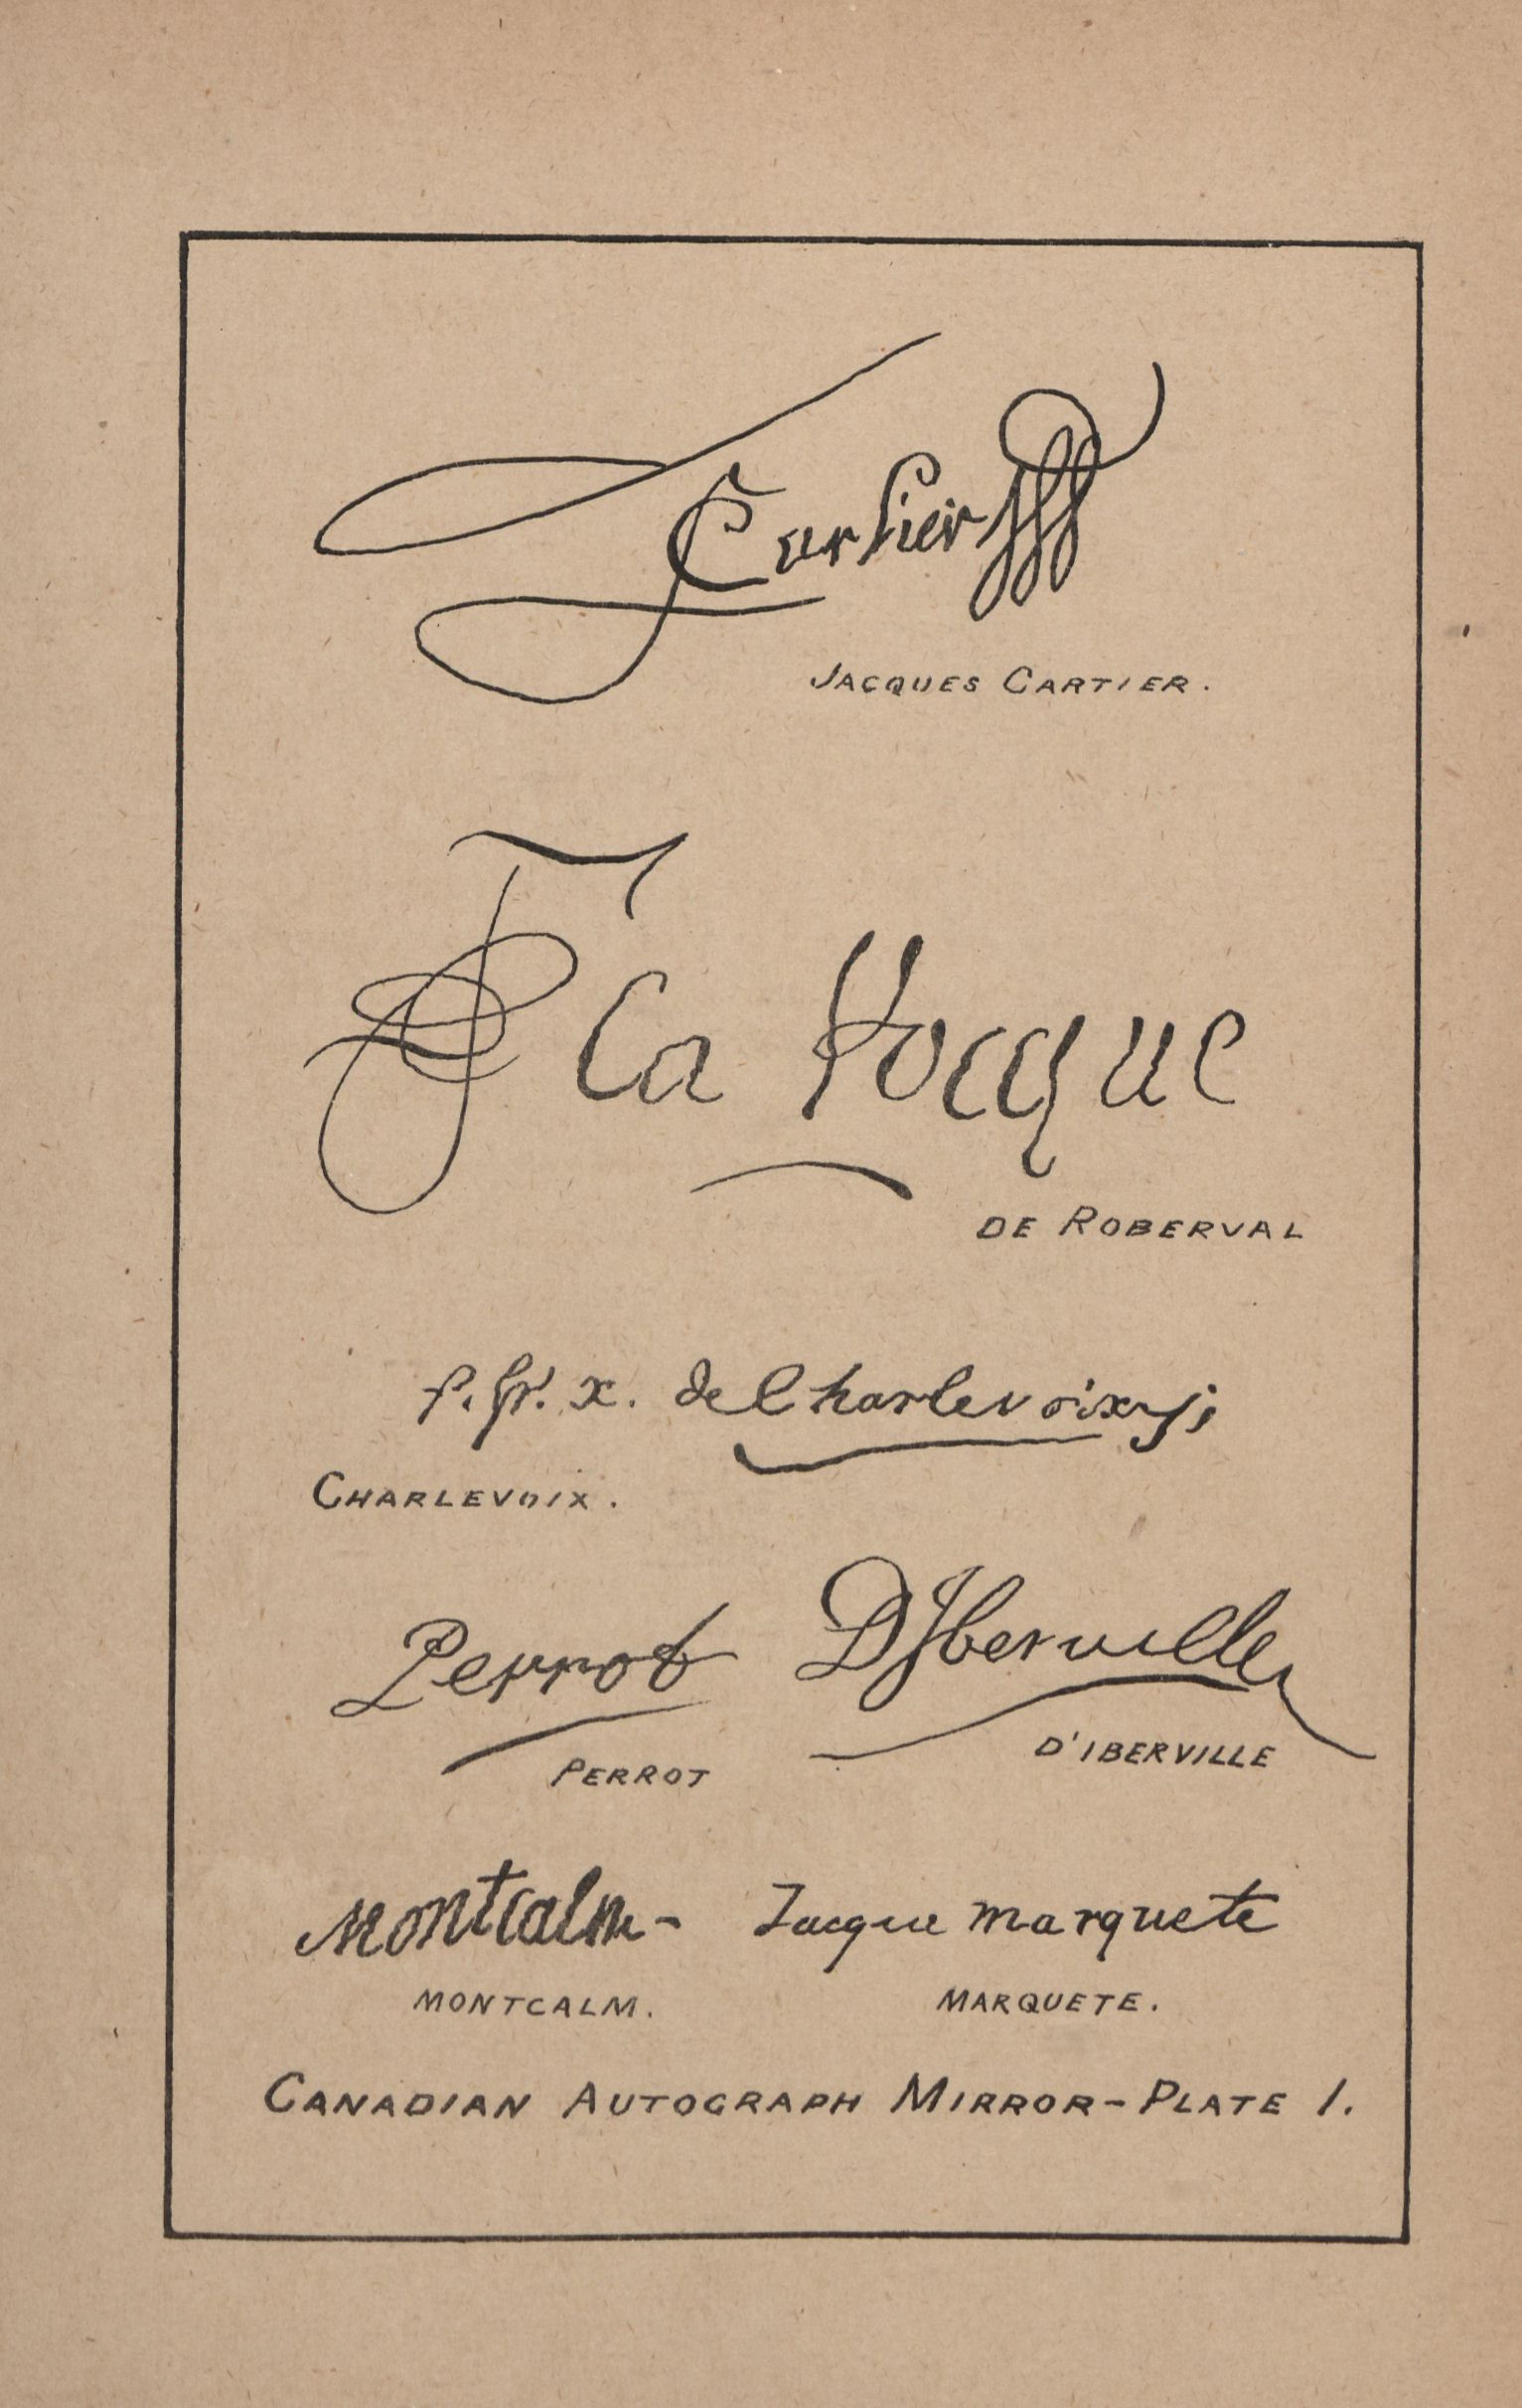 Cartier
JACQUES CARTIER.
La Rocque
DE ROBERVAL
P. Fr. X. de Charlevoix j.
CHARLEVOIX.
Perrot D'Iberville
PERROT D'IBERVILLE
Montcalm- Jacque marquete
MONTCALM. MARQUETE.
CANADIAN AUTOGRAPH MIRROR-PLATE 1.